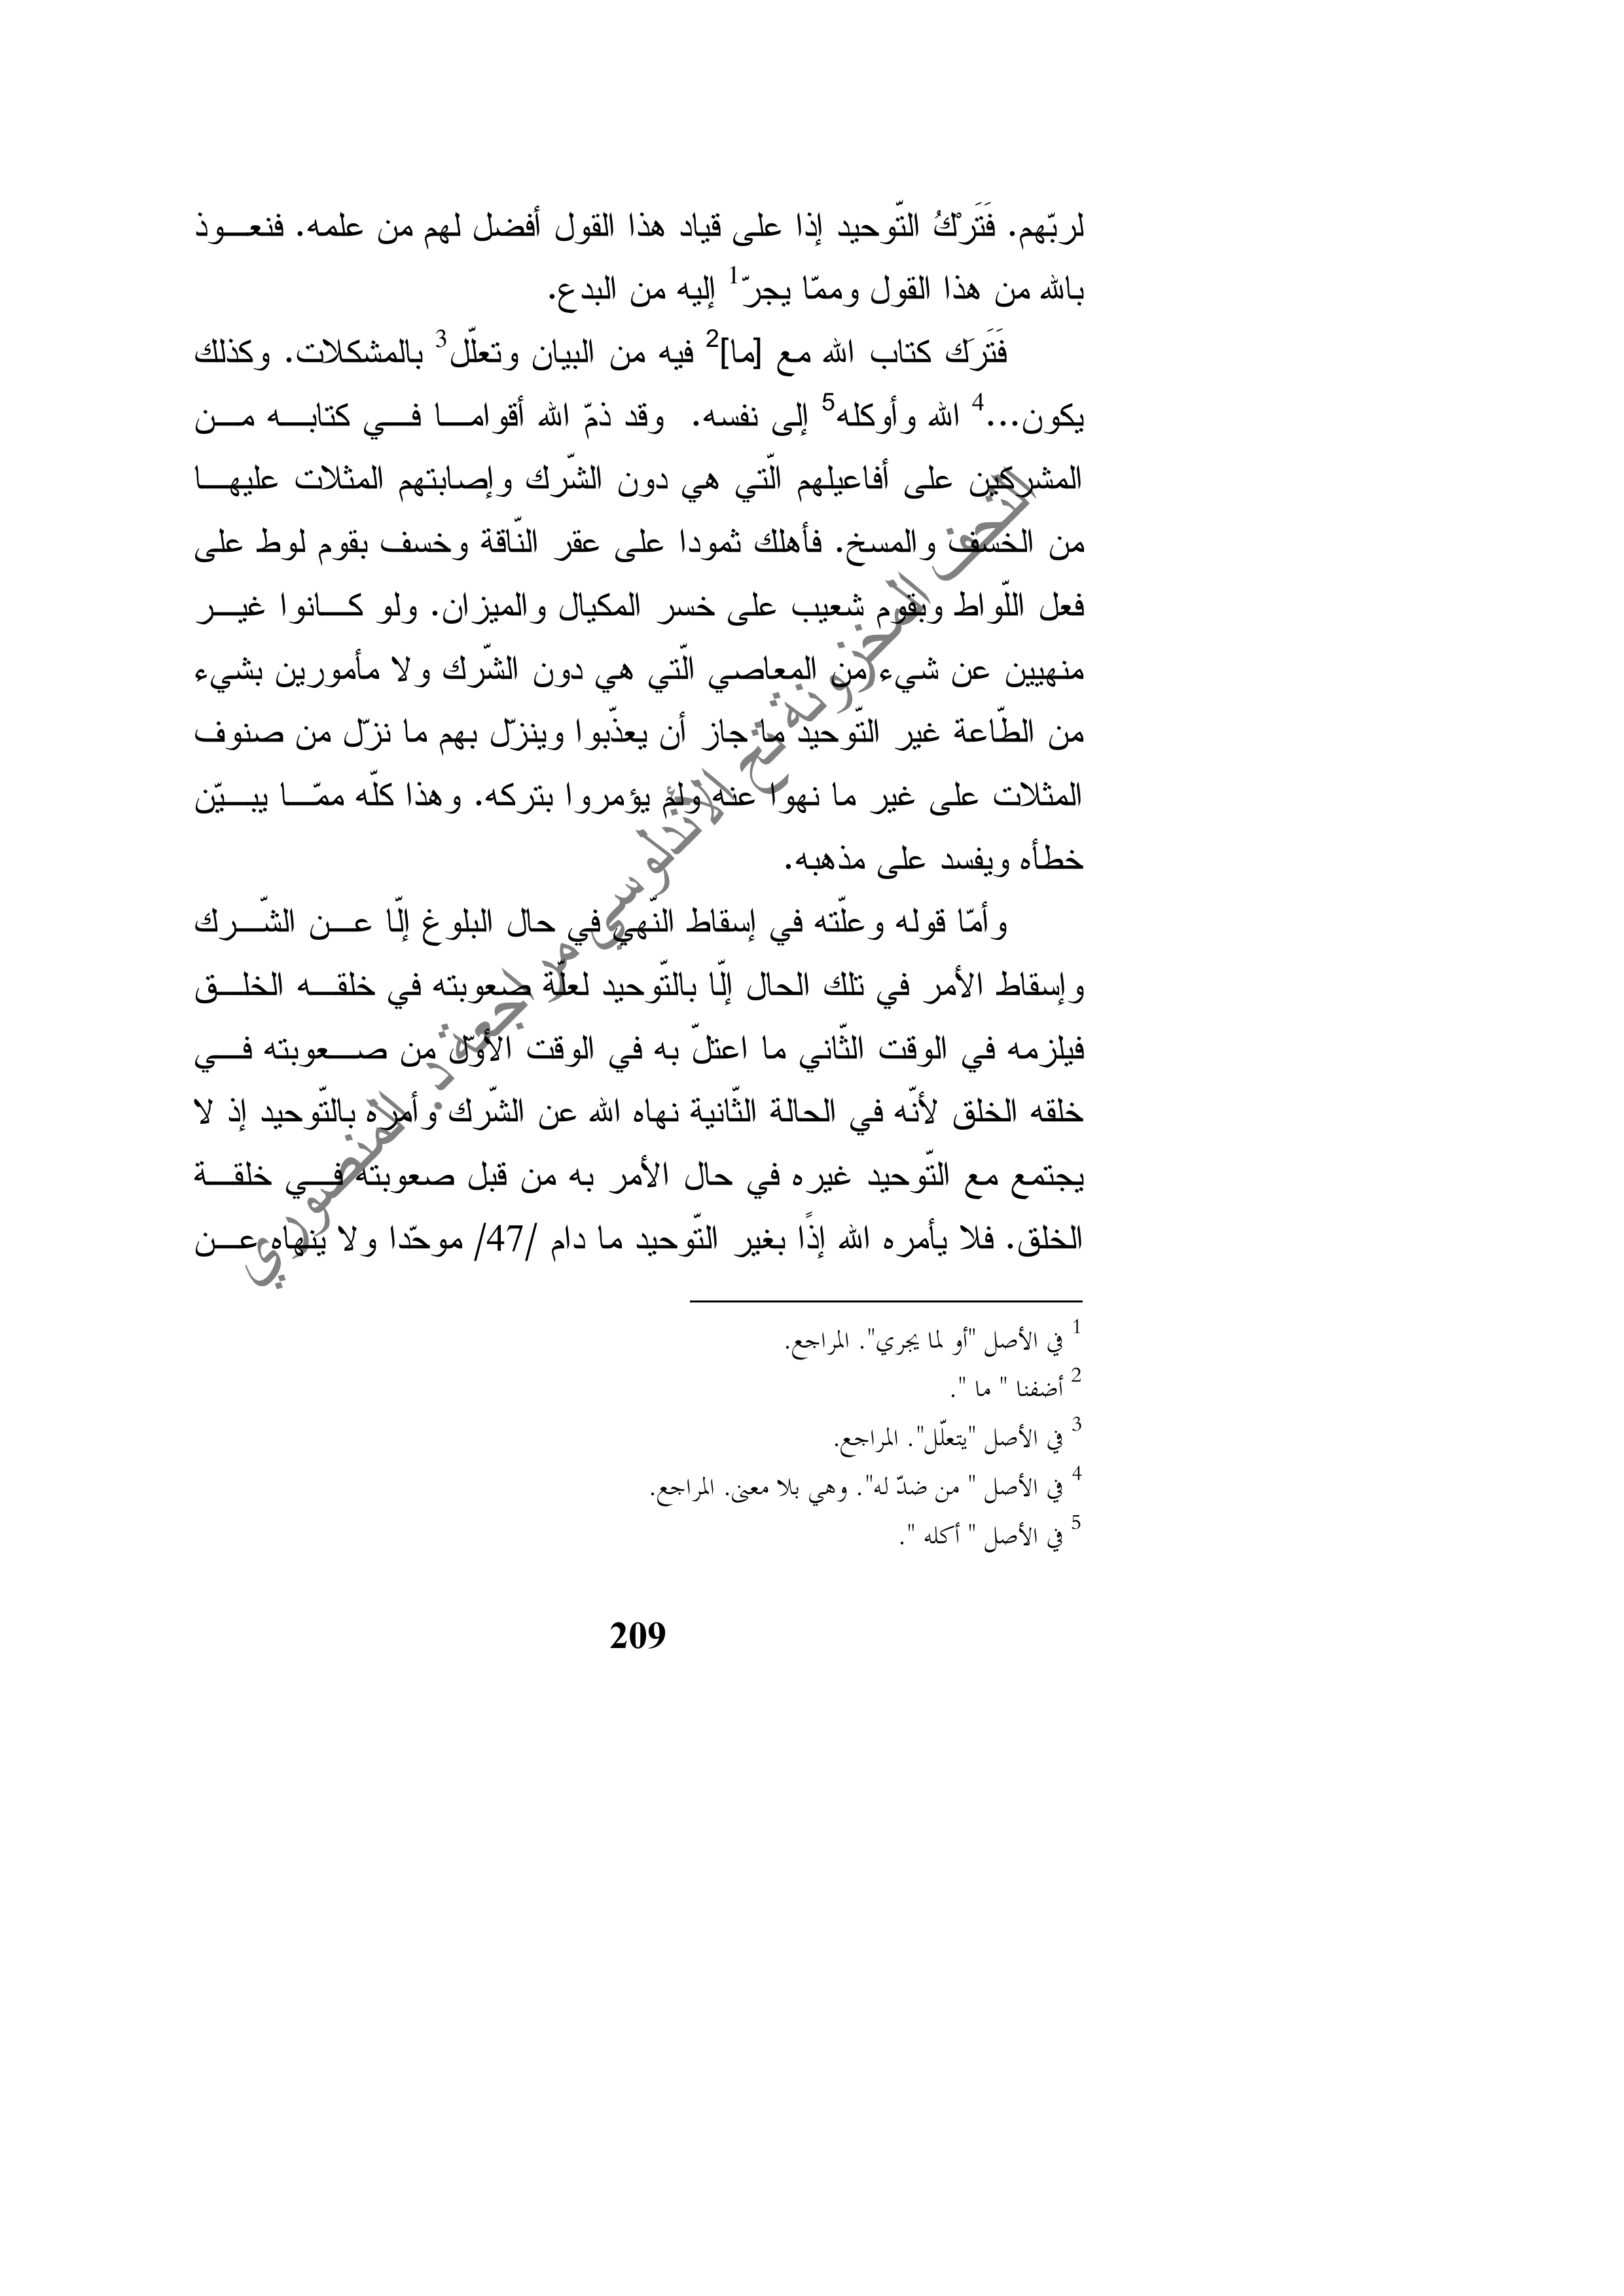 لربّهم. فَتَرْكُ التّوحيد إذا على قياد هذا القول أفضل لهم من علمه. فنعوذ
بالله من هذا القول وممّا يجرّ1 إليه من البدع.
فَتَرَك كتاب الله مع [ما]2 فيه من البيان وتعلّل3 بالمشكلات. وكذلك
يكون...4 الله وأوكله5 إلى نفسه. وقد ذمّ الله أقواما في كتابه من
المشركين على أفاعيلهم الّتي هي دون الشّرك وإصابتهم المثلات عليها
من الخسف والمسخ. فأهلك ثمودا على عقر النّاقة وخسف بقوم لوط على
فعل اللّواط وبقوم شعيب على خسر المكيال والميزان. ولو كانوا غير
منهيين عن شيء من المعاصي الّتي هي دون الشّرك ولا مأمورين بشيء
من الطّاعة غير التّوحيد ما جاز أن يعذّبوا وينزّل بهم ما نزّل من صنوف
المثلات على غير ما نهوا عنه ولم يؤمروا بتركه. وهذا كلّه ممّا يبيّن
خطأه ويفسد على مذهبه.
وأمّا قوله وعلّته في إسقاط النّهي في حال البلوغ إلّا عن الشّرك
وإسقاط الأمر في تلك الحال إلّا بالتّوحيد لعلّة صعوبته في خلقه الخلق
فيلزمه في الوقت الثّاني ما اعتلّ به في الوقت الأوّل من صعوبته في
خلقه الخلق لأنّه في الحالة الثّانية نهاه الله عن الشّرك وأمره بالتّوحيد إذ لا
يجتمع مع التّوحيد غيره في حال الأمر به من قبل صعوبته في خلقة
الخلق. فلا يأمره الله إذًا بغير التّوحيد ما دام /47/ موحّدا ولا ينهاه عن
1 في الأصل "أو لما يجري". المراجع.
2 أضفنا " ما ".
3 في الأصل "يتعلّل". المراجع.
4 في الأصل " من ضدّ له". وهي بلا معنى. المراجع.
5 في الأصل " أكله ".
209
التحف المخزونة تح الأندلوسي مراجعة د. المنصوري